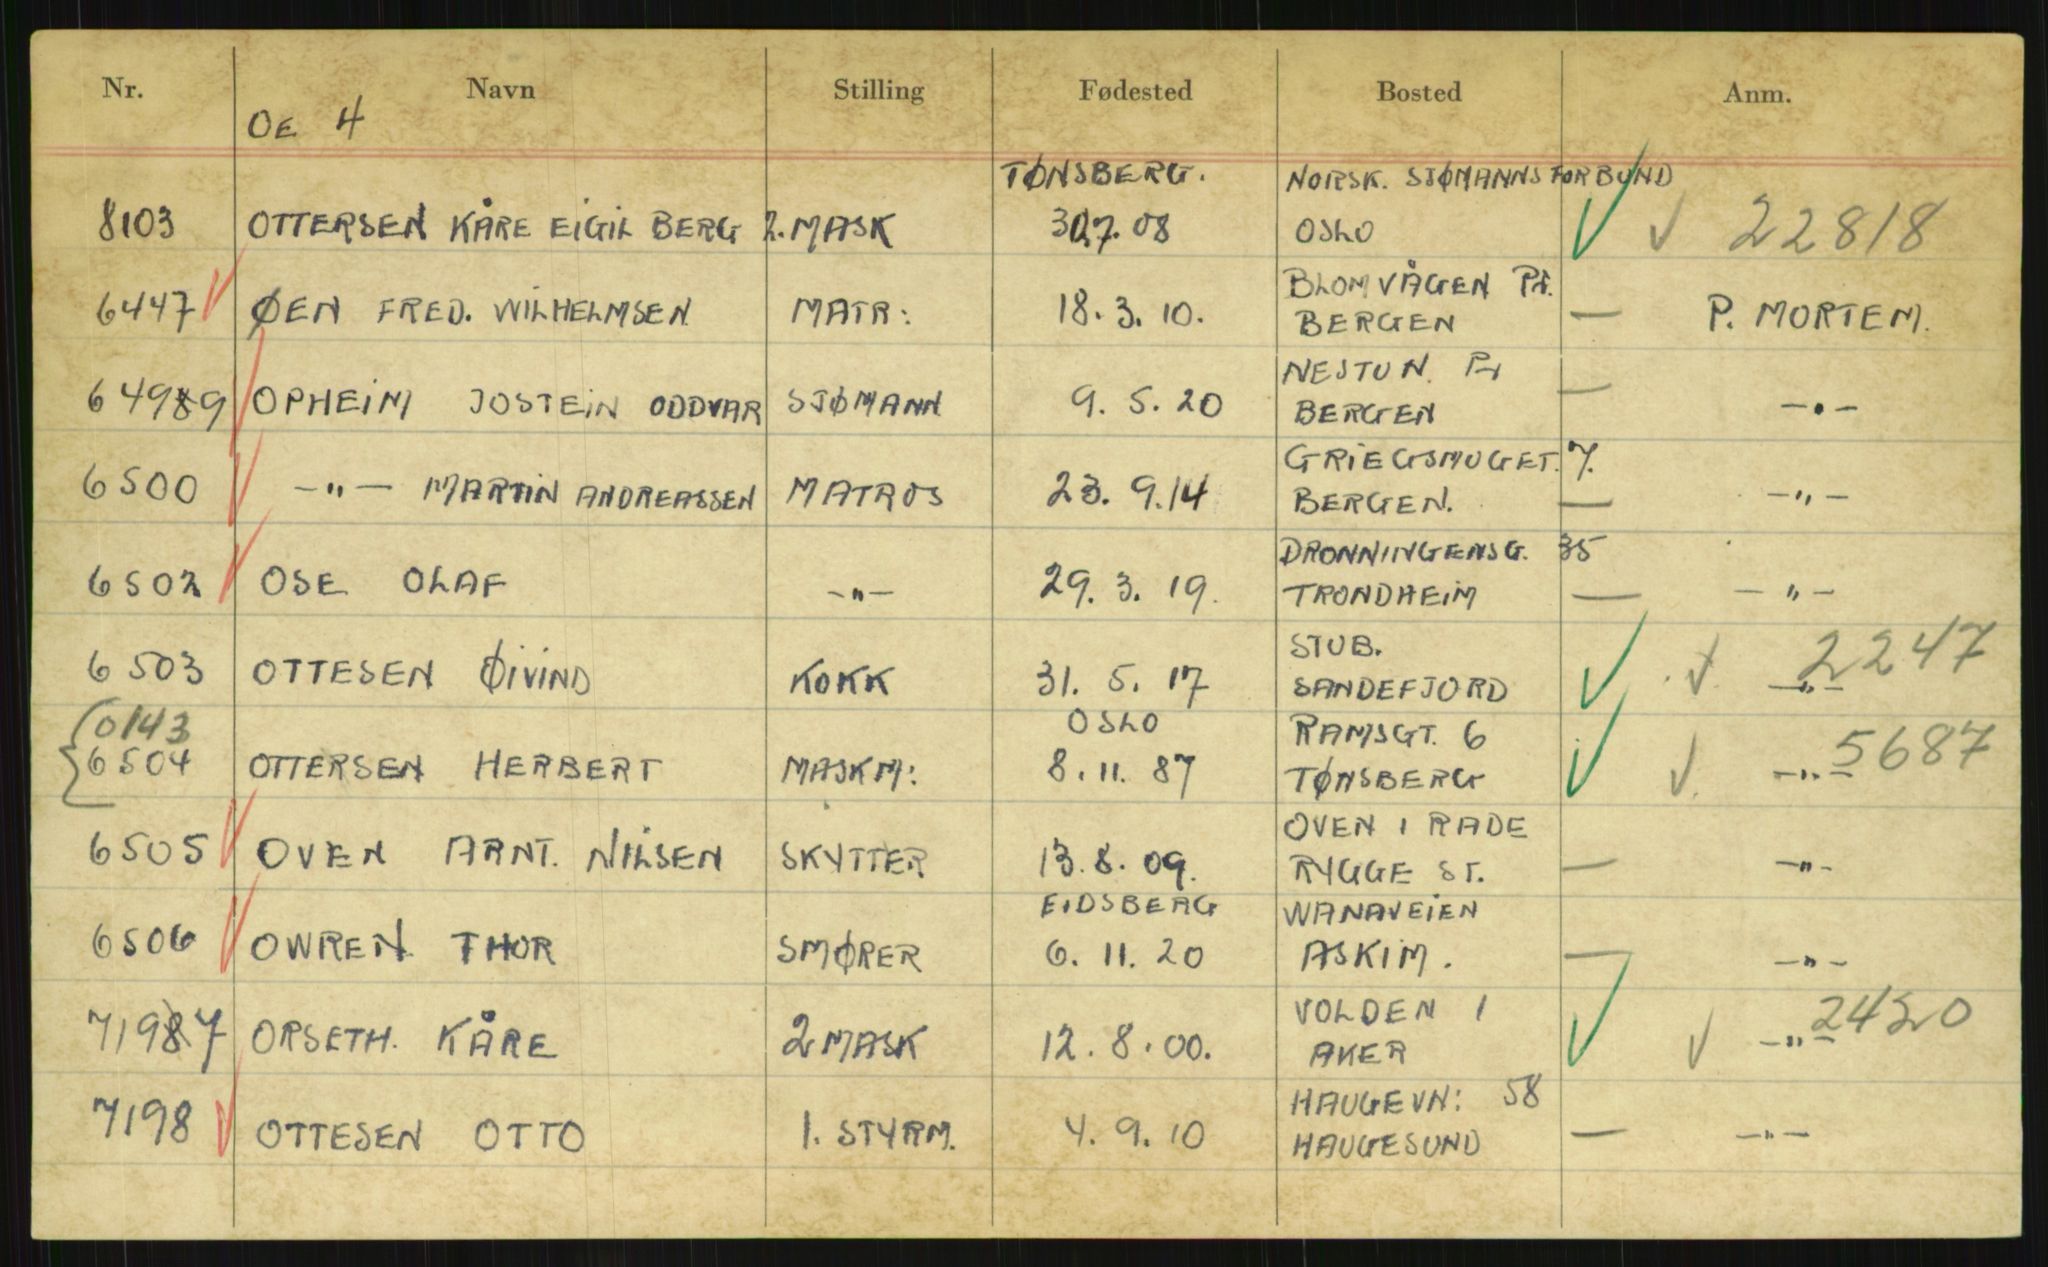 Nr. Navn Stilling Fødested Bosted Anm.
OE 4
TØNSBERG. NORSK. SJØMANNSFORBUND
8103 OTTERSEN KÅRE EIGIL BERG 2. MASK 30.7.08 OSLO 22818
BLOMVÅGEN Pr.
6447 ØEN FRED. WILHELMSEN MATR: 18.3.10. BERGEN — P. MORTEM.
NESTUN. Pr
6499 OPHEIM JOSTEIN ODDVAR SJØMANN 9.5.20 BERGEN — -•-
GRIEGSMUGET. 7.
6500 -"- MARTIN ANDREASSEN MATROS 23.9.14 BERGEN. — -"-
DRONNINGENSG. 35
6502 OSE OLAF -"- 29.3.19. TRONDHEIM — -"-
STUB. 2247
6503 OTTESEN ØIVIND KOKK 31.5.17 SANDEFJORD -"-
0143 OSLO RAMSGT. 6
6504 OTTERSEN HERBERT MASKM: 8.11.87 TØNSBERG -"- 5687
OVEN I RADE
6505 OVEN ARNT. NILSEN SKYTTER 13.8.09. RYGGE ST. — -"-
EIDSBERG WANAVEIEN
6506 OWREN THOR SMØRER 6.11.20 ASKIM. — -"-
VOLDEN I 2420
7197 ORSETH. KÅRE 2 MASK 12.8.00. AKER -"-
HAUGEVN: 58
7198 OTTESEN OTTO 1. STYRM. 4.9.10 HAUGESUND — -"-